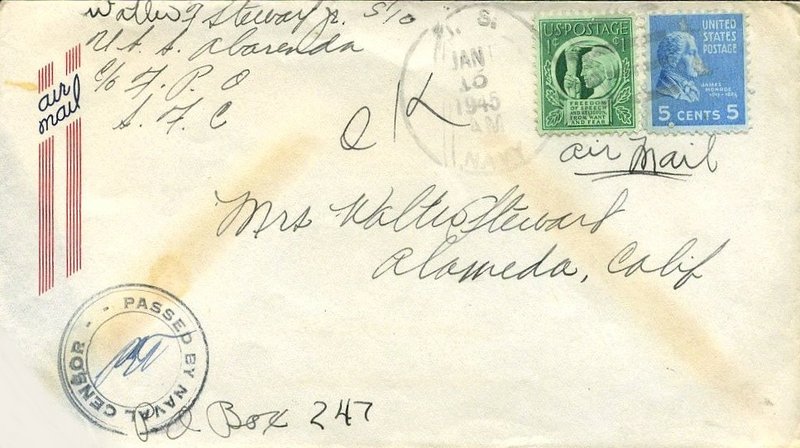 Walter J Stewart Jr. S1/c
U.S.S. Abarenda
C/o F.P.O
S.F.C
air mail
OK
U.S.
JAN
16
1945
AM
NAVY
U.S. POSTAGE
1¢ ¢1
FREEDOM
OF SPEECH
AND RELIGION
FROM WANT
AND FEAR
UNITED
STATES
POSTAGE
JAMES
MONROE
5 CENTS 5
air Mail
Mrs Walter Stewart
Alameda, Calif
PASSED BY NAVAL CENSOR
P O Box 247